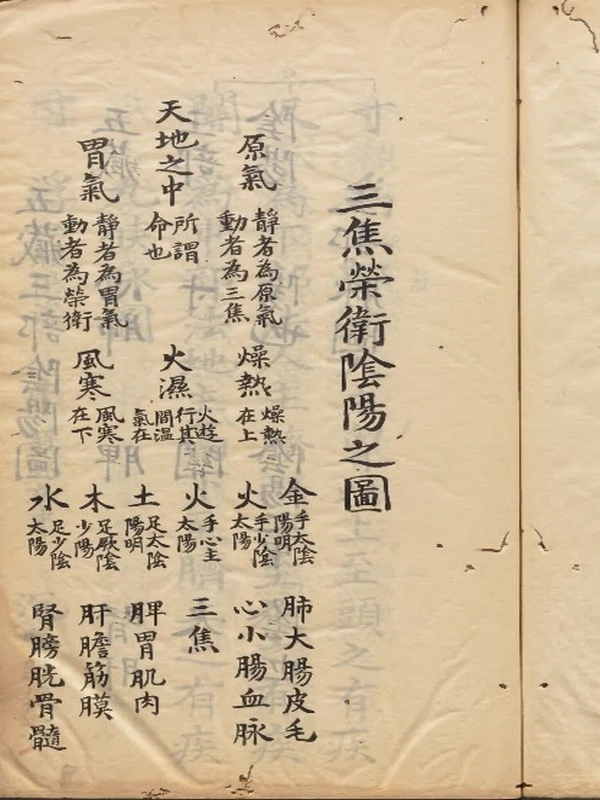 三焦榮衛陰陽之圖
原氣
靜者為原氣
動者為三焦
天地之中
所謂
命也
胃氣
靜者為胃氣
動者為榮衛
燥熱
燥熱
在上
火濕
火遊
行其
間温
氣在
風寒
風寒
在下
金
手太陰
陽明
火
手少陰
太陽
火
手心主
太陽
土
足太陰
陽明
木
足厥陰
少陽
水
足少陰
太陽
肺大腸皮毛
心小腸血脉
三焦
脾胃肌肉
肝膽筋膜
腎膀胱骨髓